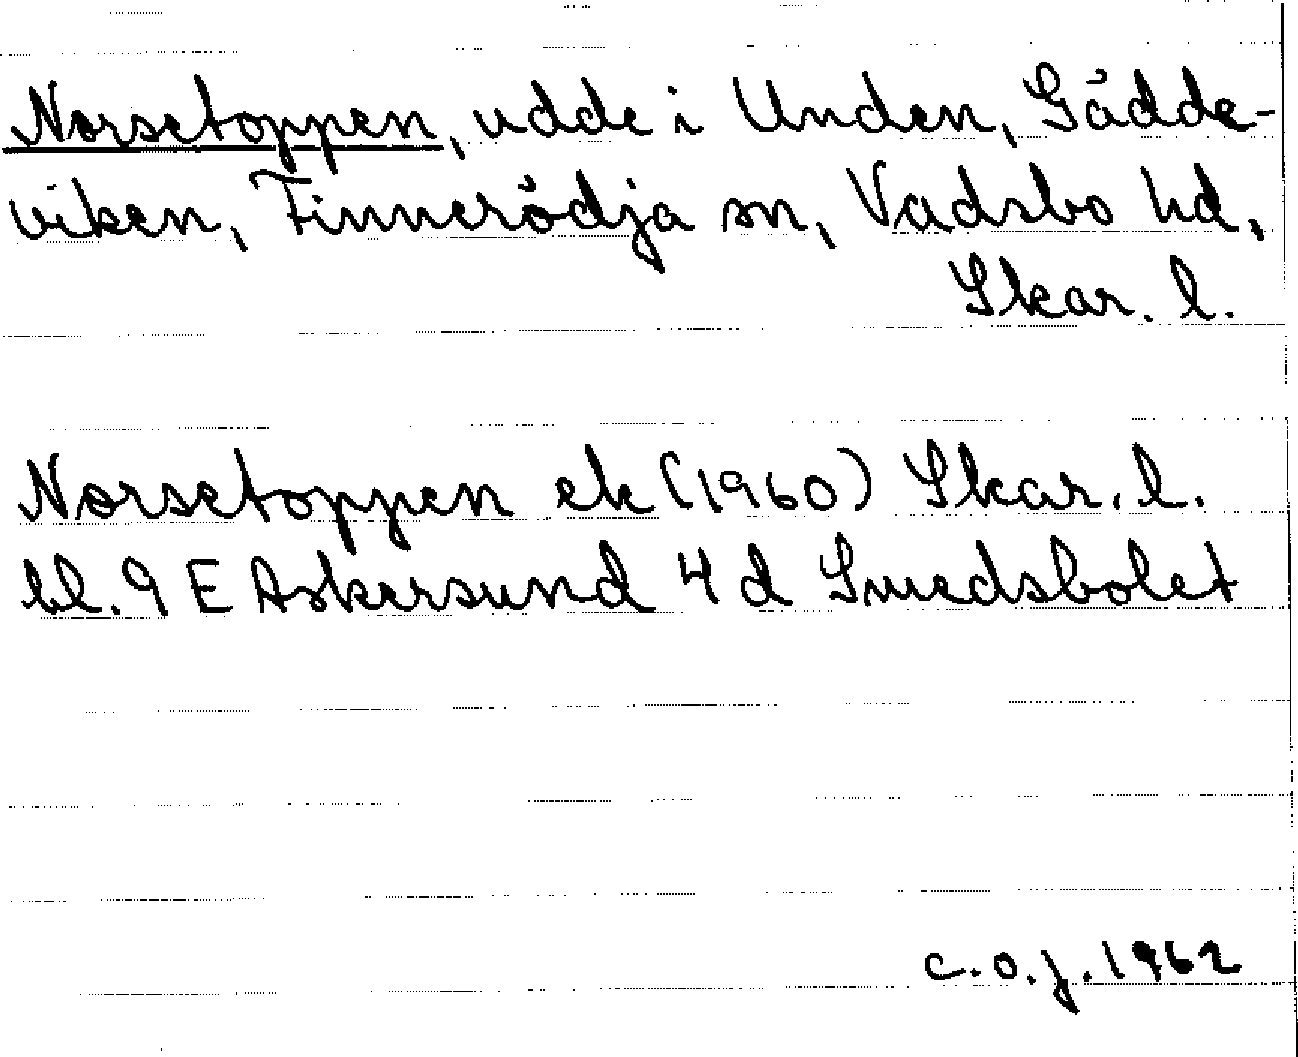 Norsetoppen, udde i Unden, Gädde-
viken, Finnerödja sn, Vadsbo hd,
Skar. l.
Norsetoppen ek (1960) Skar. l.
bl. 9 E Askersund 4 d Smedsbolet
c.o.j. 1962